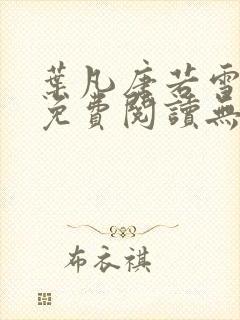 葉凡唐若雪
免費閱讀無
布衣祺